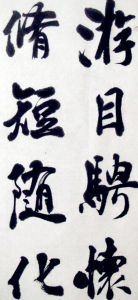 游目騁懷
脩短随化